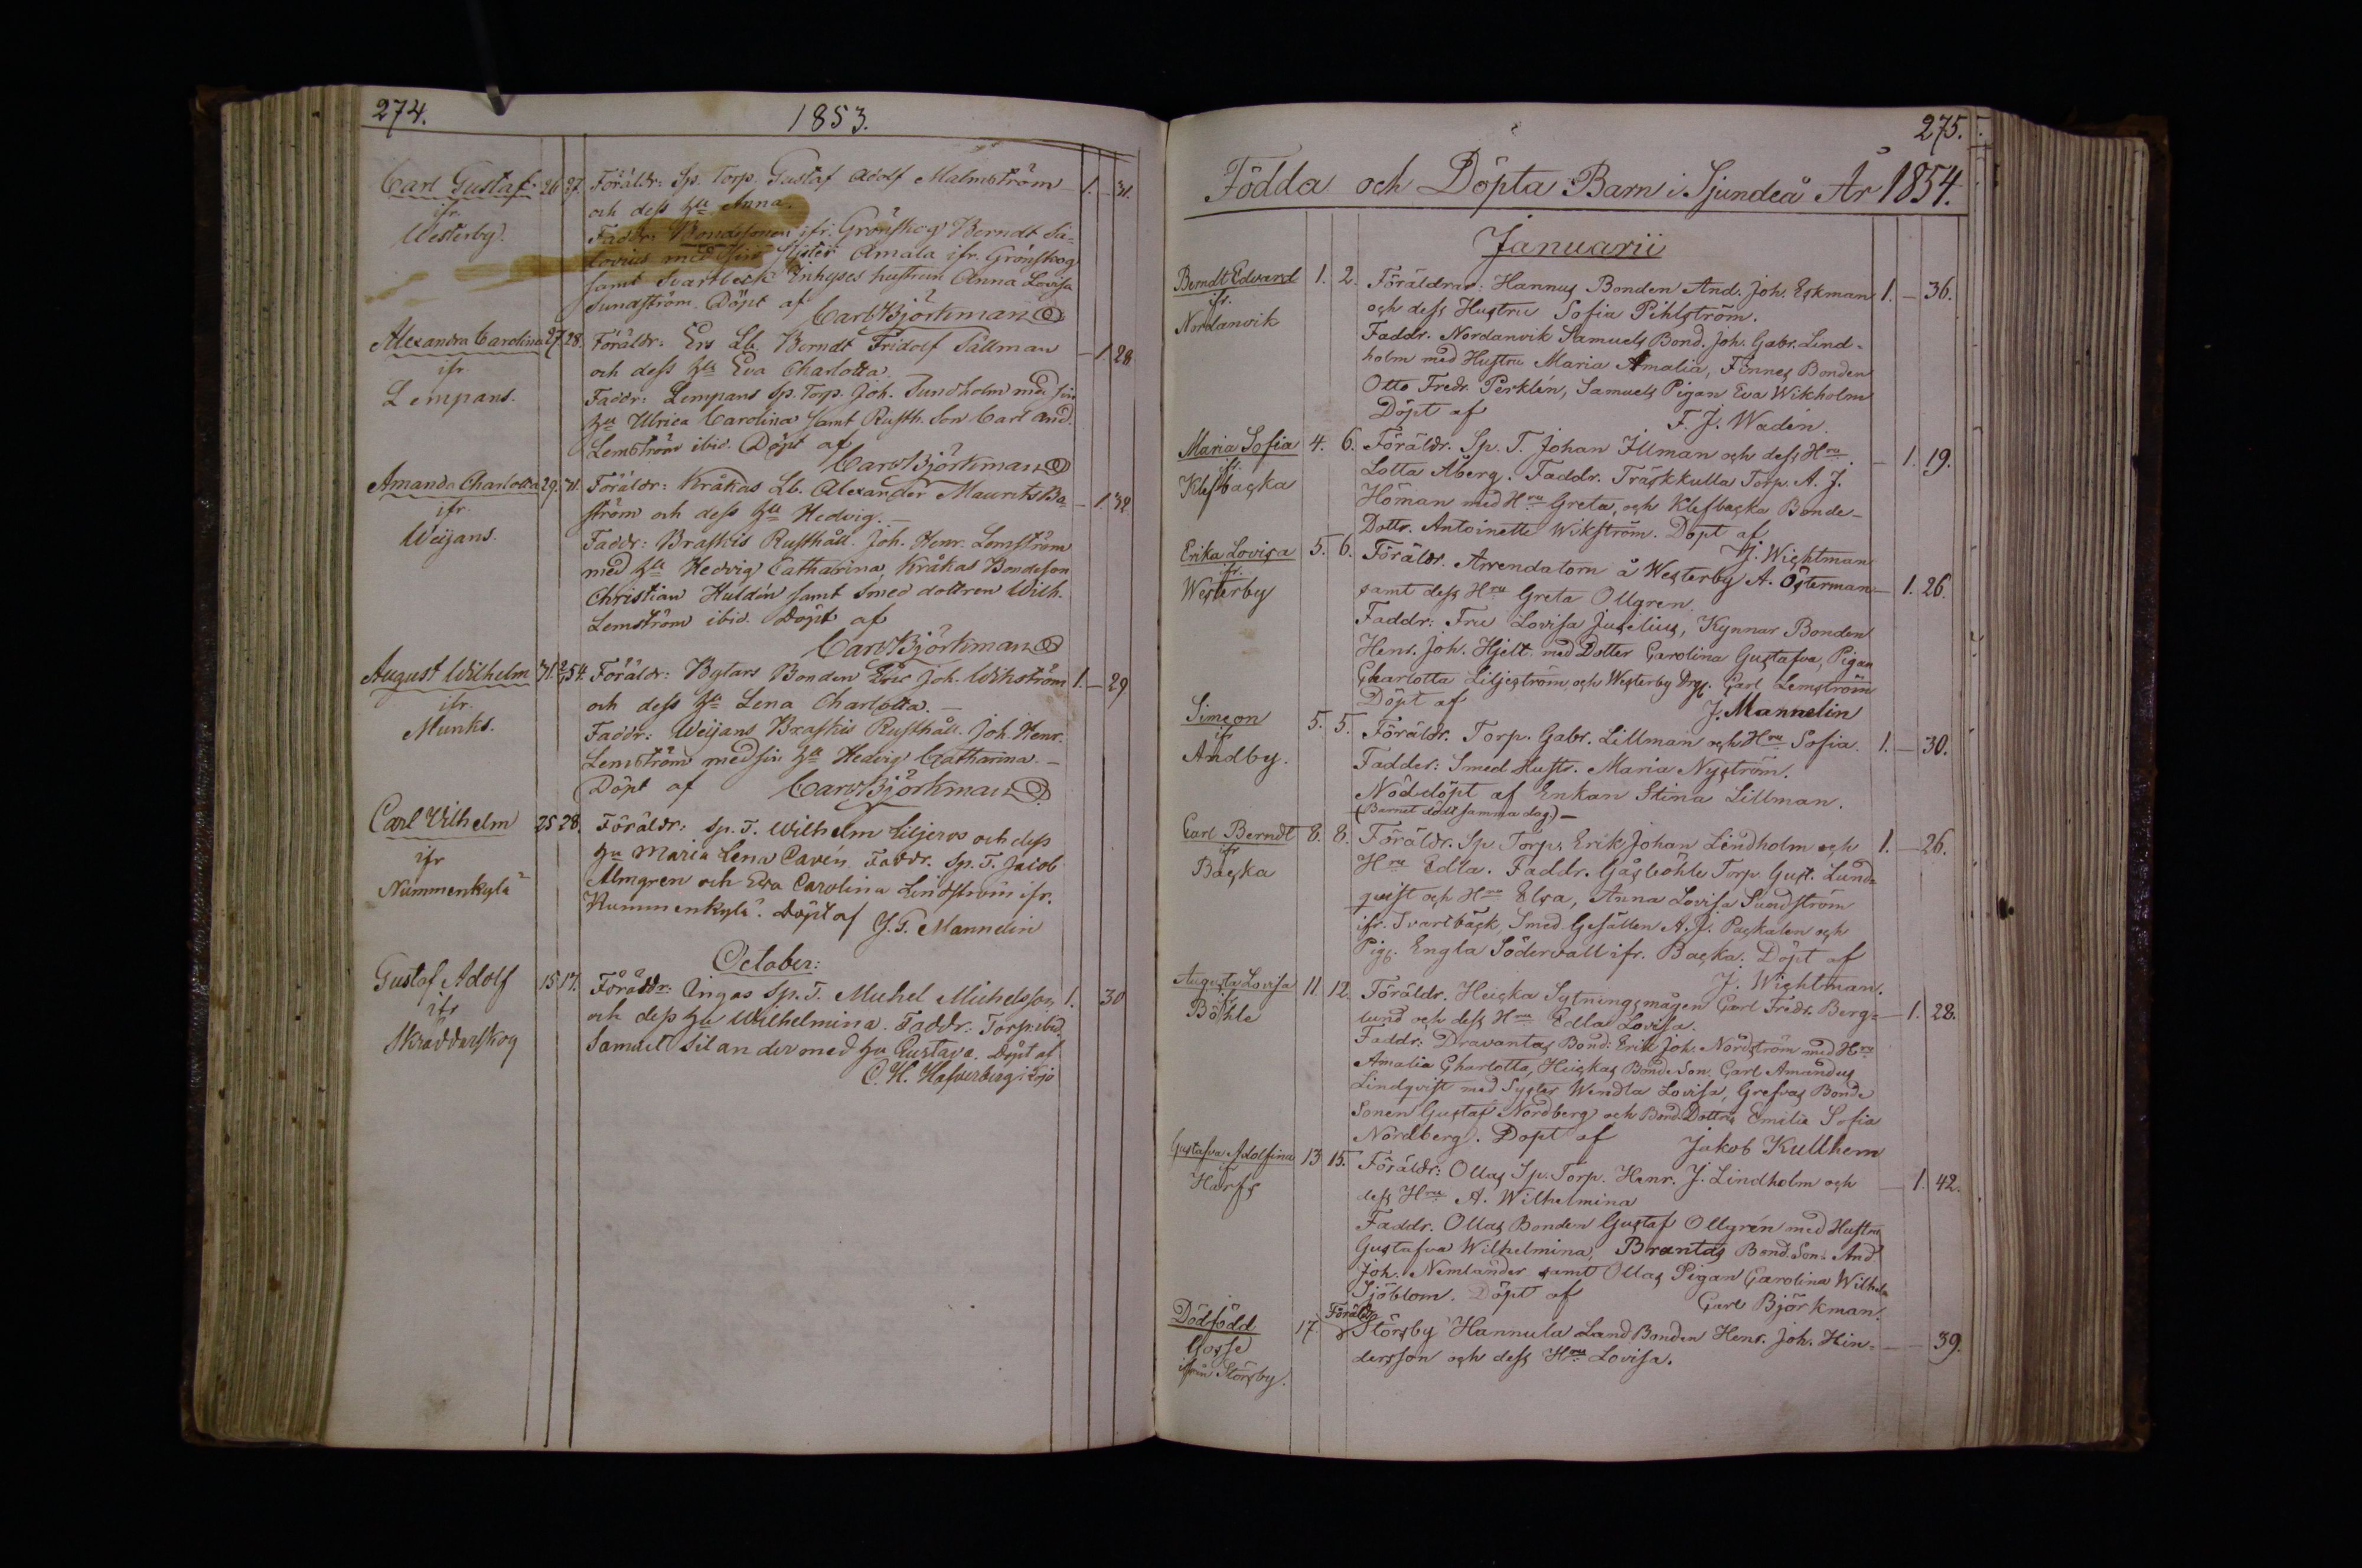 274.
1853.
Carl Gustaf 26 27. Föräldr: Sp. Torp. Gustaf Adolf Malmström 1. – 31.
ifr. och dess hu Anna.
Westerby. Faddr: Bondesonen ifr. Grönskog Berndt
med sin Syster Amala ifr. Grönskog
samt Svartbeck Inhyses hustrun Anna Lovisa
Sundström. Döpt af
Carl Björkman
Alexandra Carolina 27 28. Föräldr: Ers Lb. Berndt Fridolf Sällman – 1. 28
ifr. och dess hu Eva Charlotta.
Lempans. Faddr: Lempans Sp. Torp. Joh. Sundholm med sin
hu Ulrica Carolina samt Rusth. Son Carl And.
Lemström ibid. Döpt af
Carl Björkman
Amanda Charlotta 29. 31. Föräldr: Kråkas Lb. Alexander Maurits Ba= – 1. 32
ifr. ström och dess hu Hedvig. –
Weijans. Faddr: Braskis Rusthåll. Joh. Henr. Lemström
med hu Hedvig Catharina, Kråkas Bondeson
Christian Huldén samt Smed dottren Wilh.
Lemström ibid. Döpt af
Carl Björkman
August Wilhelm 31. 54. Föräldr: Bytars Bonden Eric Joh. Wikström 1. – 29
ifr. och dess hu Lena Charlotta. –
Munks. Faddr: Weijans Braskis Rusthåll. Joh. Henr.
Lemström med sin hu Hedvig Catharina. –
Döpt af Carl Björkman
Carl Vilhelm 25 28. Föräldr: Sp. T. Wilhelm Liljeros och dess
ifr hu Maria Lena Cavén. Faddr. Sp. T. Jacob
Nummenkylä Almgren och Eva Carolina Lindström ifr.
Nummenkylä. Döpt af J. T. Mannelin
October:
Gustaf Adolf 15 17. Föräldr: Ingas Sp. T. Michel Michelsson 1. 30
ifr och dess hu Wilhelmina. Faddr: Torp. ibid.
Skräddarskog Samuel Silander med hu Gustava. Döpt af
C. H.
275.
Födda och Döpta Barn i Sjundeå År 1854.
Januarii
Berndt Edvard 1. 2. Föräldrar: Hannus Bonden And. Joh. Eskman 1. – 36.
ifr. och dess Hustru Sofia Pihlström.
Nordanvik Faddr. Nordanvik Samuels Bond. Joh. Gabr. Lind-
holm med Hustru Maria Amalia, Finnes Bonden
Otto Fredr. Perklén, Samuels Pigan Eva Wikholm
Döpt af F. J. Wadén.
Maria Sofia 4. 6. Föräldr. Sp. T. Johan Illman och dess Hru – 1. 19.
ifr. Lotta Åberg. Faddr. Träskkulla Torp. A. J.
Klefbacka Höman med Hru Greta, och Klefbacka Bonde-
Dottr. Antoinette Wikström. Döpt af
J. Wichtman
Erika Lovisa 5. 6. Föräldr. Arrendatorn å Westerby A. Österman – 1. 26.
ifr. samt dess Hru Greta Ollgren.
Westerby Faddr: Fru Lovisa Juselius, Kynnar Bonden
Henr. Joh. Hjelt med Dotter Carolina Gustafva, Pigan
Charlotta Liljeström och Westerby Drg. Carl Lemström
Döpt af J. Mannelin
Simeon 5. 5. Föräldr. Torp. Gabr. Lillman och Hru Sofia. 1. – 30.
ifr Fadder: Smed Hustr. Maria Nyström.
Andby. Nöd-döpt af Enkan Stina Lillman.
(Barnet dödt samma dag) –
Carl Berndt 8. 8. Föräldr. Sp. Torp. Erik Johan Lindholm och 1. – 26.
ifr Hru Edla. Faddr. Gåsböhle Torp. Gust. Lund=
Backa quist och Hru Elsa, Anna Lovisa Sundström
ifr. Svartbäck, Smed Gesällen A. J. Packalen och
Pig. Engla Södervall ifr. Backa. Döpt af
J. Wichtman.
Augusta Lovisa 11. 12. Föräldr. Heicka Sytningsmågen Carl Fredr. Berg= – 1. 28.
ifr. lund och dess Hru Edla Lovisa.
Böhle Faddr: Dravantas Bond: Erik Joh. Nordström med Hru
Amalia Charlotta, Heickas Bonde Son. Carl Amandus
Lindqvist med Syster Wendla Lovisa, Grefvas Bonde
Sonen Gustaf Nordberg och Bond. Dottrn Emilia Sofia
Nordberg. Döpt af Jakob Kullhem
Gustafva Adolfina 13 15. Föräldr: Ollas Sp. Torp. Henr. J. Lindholm och – 1. 42.
ifr dess Hru A. Wilhelmina
Harfs Faddr. Ollas Bonden Gustaf Ollgrén med Hustru
Gustafva Wilhelmina, Brantas Bond. Son. And.
Joh. Nemlander samt Ollas Pigan Carolina Wilhelm
Sjöblom. Döpt af Carl Björkman.
Dödfödd 17. Föräldr Störsby Hannula Land Bonden Henr. Joh. Hin= – – 39.
Gosse dersson och dess Hru Lovisa.
ifrån Störsby.